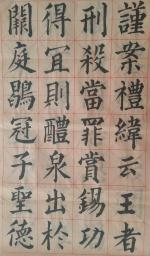 謹案禮緯云王者
刑殺當罪賞錫功
得冝則醴泉出於
闕庭鶡冠子聖德